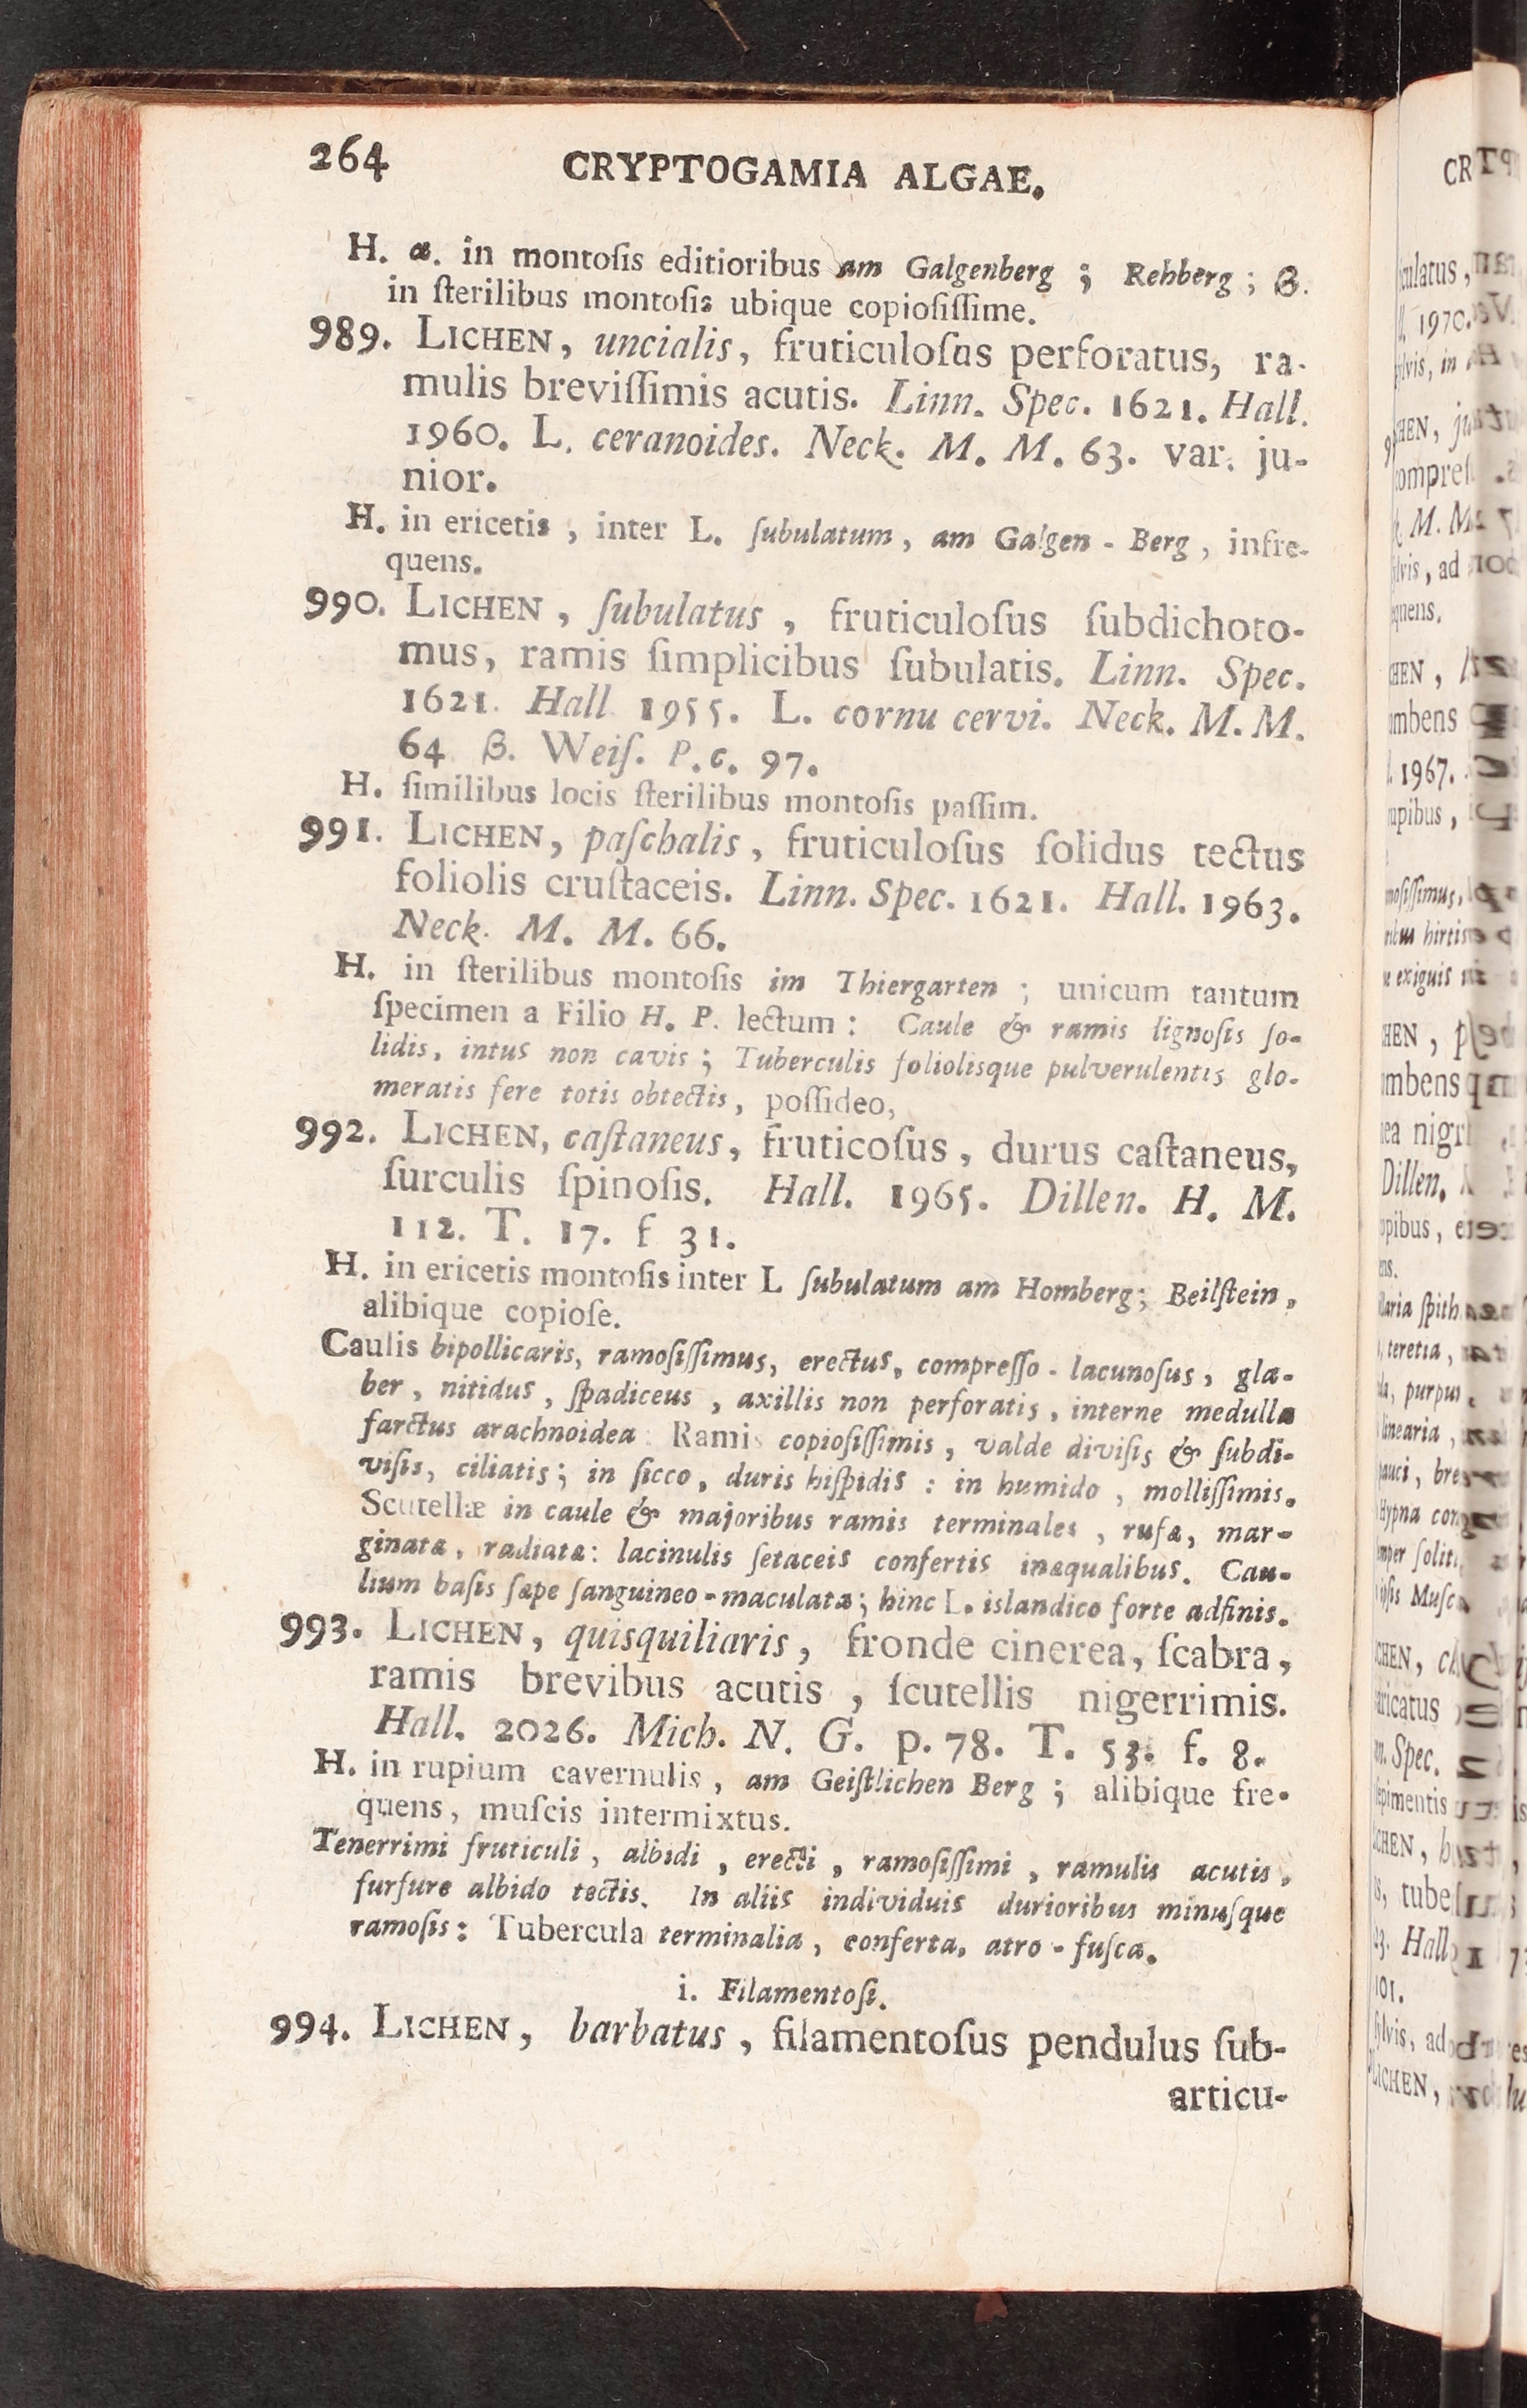 264 CRYPTOGAMIA ALGAE.
H. α. in montoſis editioribus am Galgenberg ; Rehberg ; β.
in ſterilibus montoſis ubique copioſiſſime.
989. LICHEN, uncialis, fruticuloſus perforatus, ra-
mulis breviſſimis acutis. Linn. Spec. 1621. Hall.
1960. L. ceranoides. Neck. M. M. 63. var. ju-
nior.
H. in ericetis , inter L. ſubulatum, am Galgen - Berg, infre-
quens.
990. LICHEN, ſubulatus , fruticuloſus ſubdichoto-
mus, ramis ſimplicibus ſubulatis. Linn. Spec.
1621. Hall 1955. L. cornu cervi. Neck. M. M.
64 β. Weiſ. P. c. 97.
H. ſimilibus locis ſterilibus montoſis paſſim.
991. LICHEN, paſchalis, fruticuloſus ſolidus tectus
foliolis cruſtaceis. Linn. Spec. 1621. Hall. 1963.
Neck. M. M. 66.
H. in ſterilibus montoſis im Thiergarten ; unicum tantum
ſpecimen a Filio H. P. lectum : Caule & ramis lignoſis ſo-
lidis, intus non cavis ; Tuberculis foliolisque pulverulentis glo-
meratis fere totis obtectis, poſſideo,
992. LICHEN, caſtaneus, fruticoſus, durus caſtaneus,
ſurculis ſpinoſis. Hall. 1965. Dillen. H. M.
112. T. 17. f 31.
H. in ericetis montoſis inter L ſubulatum am Homberg; Beilſtein,
alibique copioſe.
Caulis bipollicaris, ramoſiſſimus, erectus, compreſſo - lacunoſus, gla-
ber, nitidus, ſpadiceus , axillis non perforatis, interne medulla
farctus arachnoidea Ramis copioſiſſimis, valde diviſis & ſubdi-
viſis, ciliatis; in ſicco, duris hiſpidis : in humido , molliſſimis.
Scutellæ in caule & majoribus ramis terminales , rufæ, mar-
ginatæ, radiatæ: lacinulis ſetaceis confertis inæqualibus. Cau-
lium baſis ſæpe ſanguineo - maculata; hinc L. islandico forte adfinis.
993. LICHEN, quisquiliaris, fronde cinerea, ſcabra,
ramis brevibus acutis , ſcutellis nigerrimis.
Hall. 2026. Mich. N. G. p. 78. T. 53. f. 8.
H. in rupium cavernulis, am Geiſtlichen Berg ; alibique fre-
quens, muſcis intermixtus.
Tenerrimi fruticuli, albidi , erecti , ramoſiſſimi , ramulis acutis,
furfure albido tectis. In aliis individuis durioribus minuſque
ramoſis: Tubercula terminalia , conferta, atro - fuſca.
i. Filamentoſi.
994. LICHEN, barbatus, filamentoſus pendulus ſub-
articu-